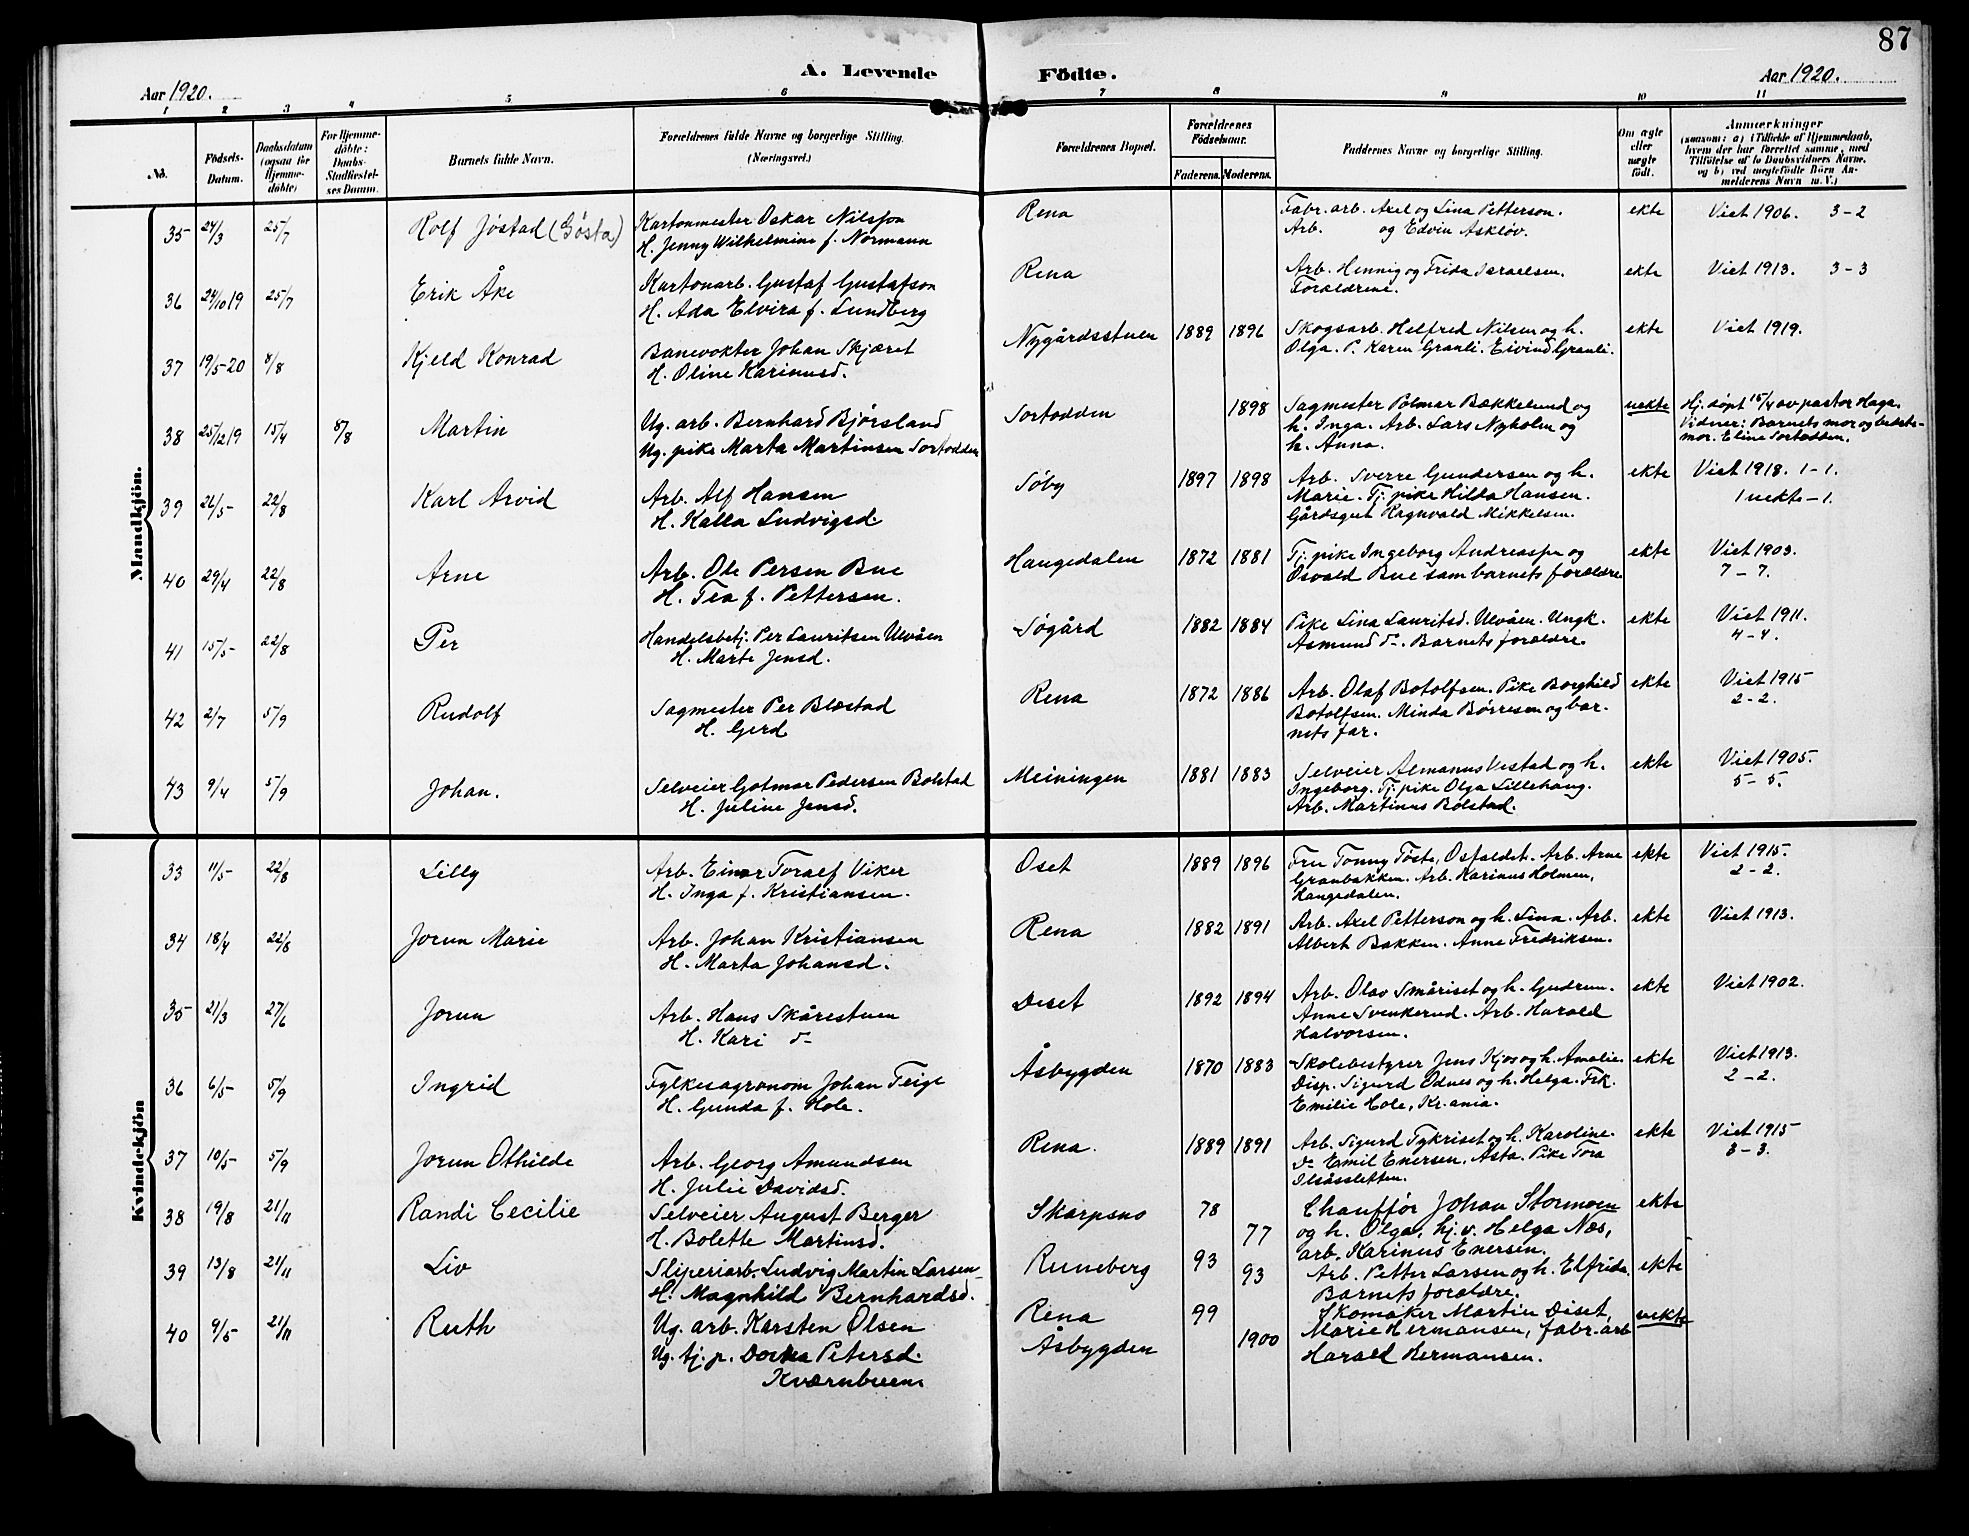 87
A. Levende Födte.
Aar 1920.
Aar 1920.
1 2 3 4 5 6 7 8 9 10 11
No.
Födsels-Datum.
Daabsdatum (ogsaa for Hjemme-døbte)
For Hjemme-döbte: Daabs-Stadfæstel-ses Datum.
Barnets fulde Navn.
Forældrenes fulde Navne og borgerlige Stilling. (Næringsvei.)
Forældrenes Bopæl.
Forældrenes Födselsaar.
Faderens. Moderens.
Faddernes Navne og borgerlige Stilling.
Om ægte eller uægte födt.
Anmærkninger
(saasom: a) i Tilfælde af Hjemmedaab,
hvem der har forrettet samme, med
Tilföielse af to Daabsvidners Navne,
og b) ved uægtefödte Börn An-
melderens Navn m. V.)
Mandkjön.
35 24/3 25/7 Rolf Jøstad (Gøsta) Kartonmester Oskar Nilsson Rena Fabr. arb. Axel og Lina Petterson. ekte Viet 1906. 3-2
H. Jenny Wilhelmine f. Normann Arb. og Edvin Askløv.
36 24/10 19 25/7 Erik Åke Kartonarb. Gustaf Gustafson Rena Arb. Hennig og Frida Israelsen. ekte Viet 1913. 3-3
H. Ada Elvira f. Lundberg Forældrene.
37 19/5-20 8/8 Kjeld Konrad Banevokter Johan Skjæret Nygårdsstuen 1889 1896 Skogsarb. Helfred Nilsen og h. ekte Viet 1919.
H. Oline Karinusd. Olga. P. Karen Granli. Eivind Granli.
38 25/12 19 15/4 8/8 Martin Ug. arb. Bernhard Bjørsland Sortodden 1898 Sagmester Polmar Bækkelund og uekte Hj. døpt 15/4 av pastor Haga.
Ug. pike Marta Martinsen Sortodden h. Inga. Arb. Lars Nyholm og Vidner: Barnets mor og bedste-
h. Anna. mor. Eline Sortodden.
39 26/5- 22/8 Karl Arvid Arb. Alf Hansen Søby 1897 1898 Arb. Sverre Gundersen og h. ekte Viet 1918. 1-1.
H. Kalla Ludvigsd. Marie. Tj. pike Hilda Hansen. 1 uekte-1.
Gårdsgut Ragnvald Mikkelsen.
40 29/4 22/8 Arne Arb. Ole Persen Bue Haugedalen 1872 1881 Tj. pike Ingeborg Andreassen og ekte Viet 1903.
H. Tea f. Pettersen. Osvald Bue sam barnets forældre 7-7.
41 15/5- 22/8 Per Handelsbetj. Per Lauritsen Ulvåen Søgård 1882 1884 Pike Lina Lauritsd. Ulvåen. Ungk. ekte Viet 1911.
H. Marte Jensd. Asmund do. Barnets forældre. 4-4.
42 2/7 5/9 Rudolf Sagmester Per Blæstad Rena 1872 1886 Arb. Olaf Botolfsen. Pike Borghild ekte Viet 1915
H. Gerd Botolfsen. Minda Børresen og bar- 2-2.
nets far.
43 9/4 5/9 Johan. Selveier Gotmar Pedersen Bolstad Meiningen 1881 1883 Selveier Almanus Vestad og h. ekte Viet 1905.
H. Juline Jensd. Ingeborg. Tj. pike Olga Lillehaug. 5-5.
Arb. Martinus Bolstad.
Kvindekjön
33 11/5- 22/8 Lilly Arb. Einar Toralf Viker Oset 1889 1896 Fru Tonny Tøste, Osfaldet. Arb. Arne ekte Viet 1915.
H. Inga f. Kristiansen. Granbakken. Arb. Karinus Holmen, 2-2.
Haugedalen.
34 18/4 22/8 Jorun Marie Arb. Johan Kristiansen Rena 1882 1891 Arb. Axel Petterson og h. Lina. Arb. ekte Viet 1913.
H. Marta Johansd. Albert Bakken. Anne Fredriksen.
35 21/3 27/6 Jorun Arb. Hans Skårestuen Diset 1892 1894 Arb. Olav Småriset og h. Gudrun. ekte Viet 1902.
H. Kari do Anne Svenkerud. Arb. Harald
Halvorsen.
36 6/5- 5/9 Ingrid Fylkesagronom Johan Teige Åsbygden 1870 1883 Skolebestyrer Jens Kjos og h. Amalie. ekte Viet 1913.
H. Gunda f. Hole. Disp. Sigurd Odnes og h. Helga. Frk. 2-2.
Emilie Hole, Kr.ania.
37 10/5- 5/9 Jorun Othilde Arb. Georg Amundsen Rena. 1889 1891 Arb. Sigurd Fykriset og h. Karoline. ekte Viet 1915
H. Julie Davidsd. do Emil Enersen, Åsta. Pike Tora 3-3.
Ilsåsletten.
38 19/8 21/11 Randi Cecilie Selveier August Berger Skarpsno 78 Chauffør Johan Stormoen ekte
H. Bolette Martinsd. 77 og h. Olga, hj. v. Helga Næs,
arb. Karinus Enersen.
39 13/8 21/11 Liv Sliperiarb. Ludvig Martin Larsen Runeberg 93 Arb. Petter Larsen og h. Elfrida. ekte
H. Magnhild Bernhardsd. 93 Barnets forældre.
40 9/5 21/11 Ruth Ug. arb. Karsten Olsen Rena 99 Skomaker Martin Diset, uekte
Ug. tj. p. Petersd. Åsbygden 1900 Marie Hermansen, fabr. arb
Kværnbuen Harald Hermansen.